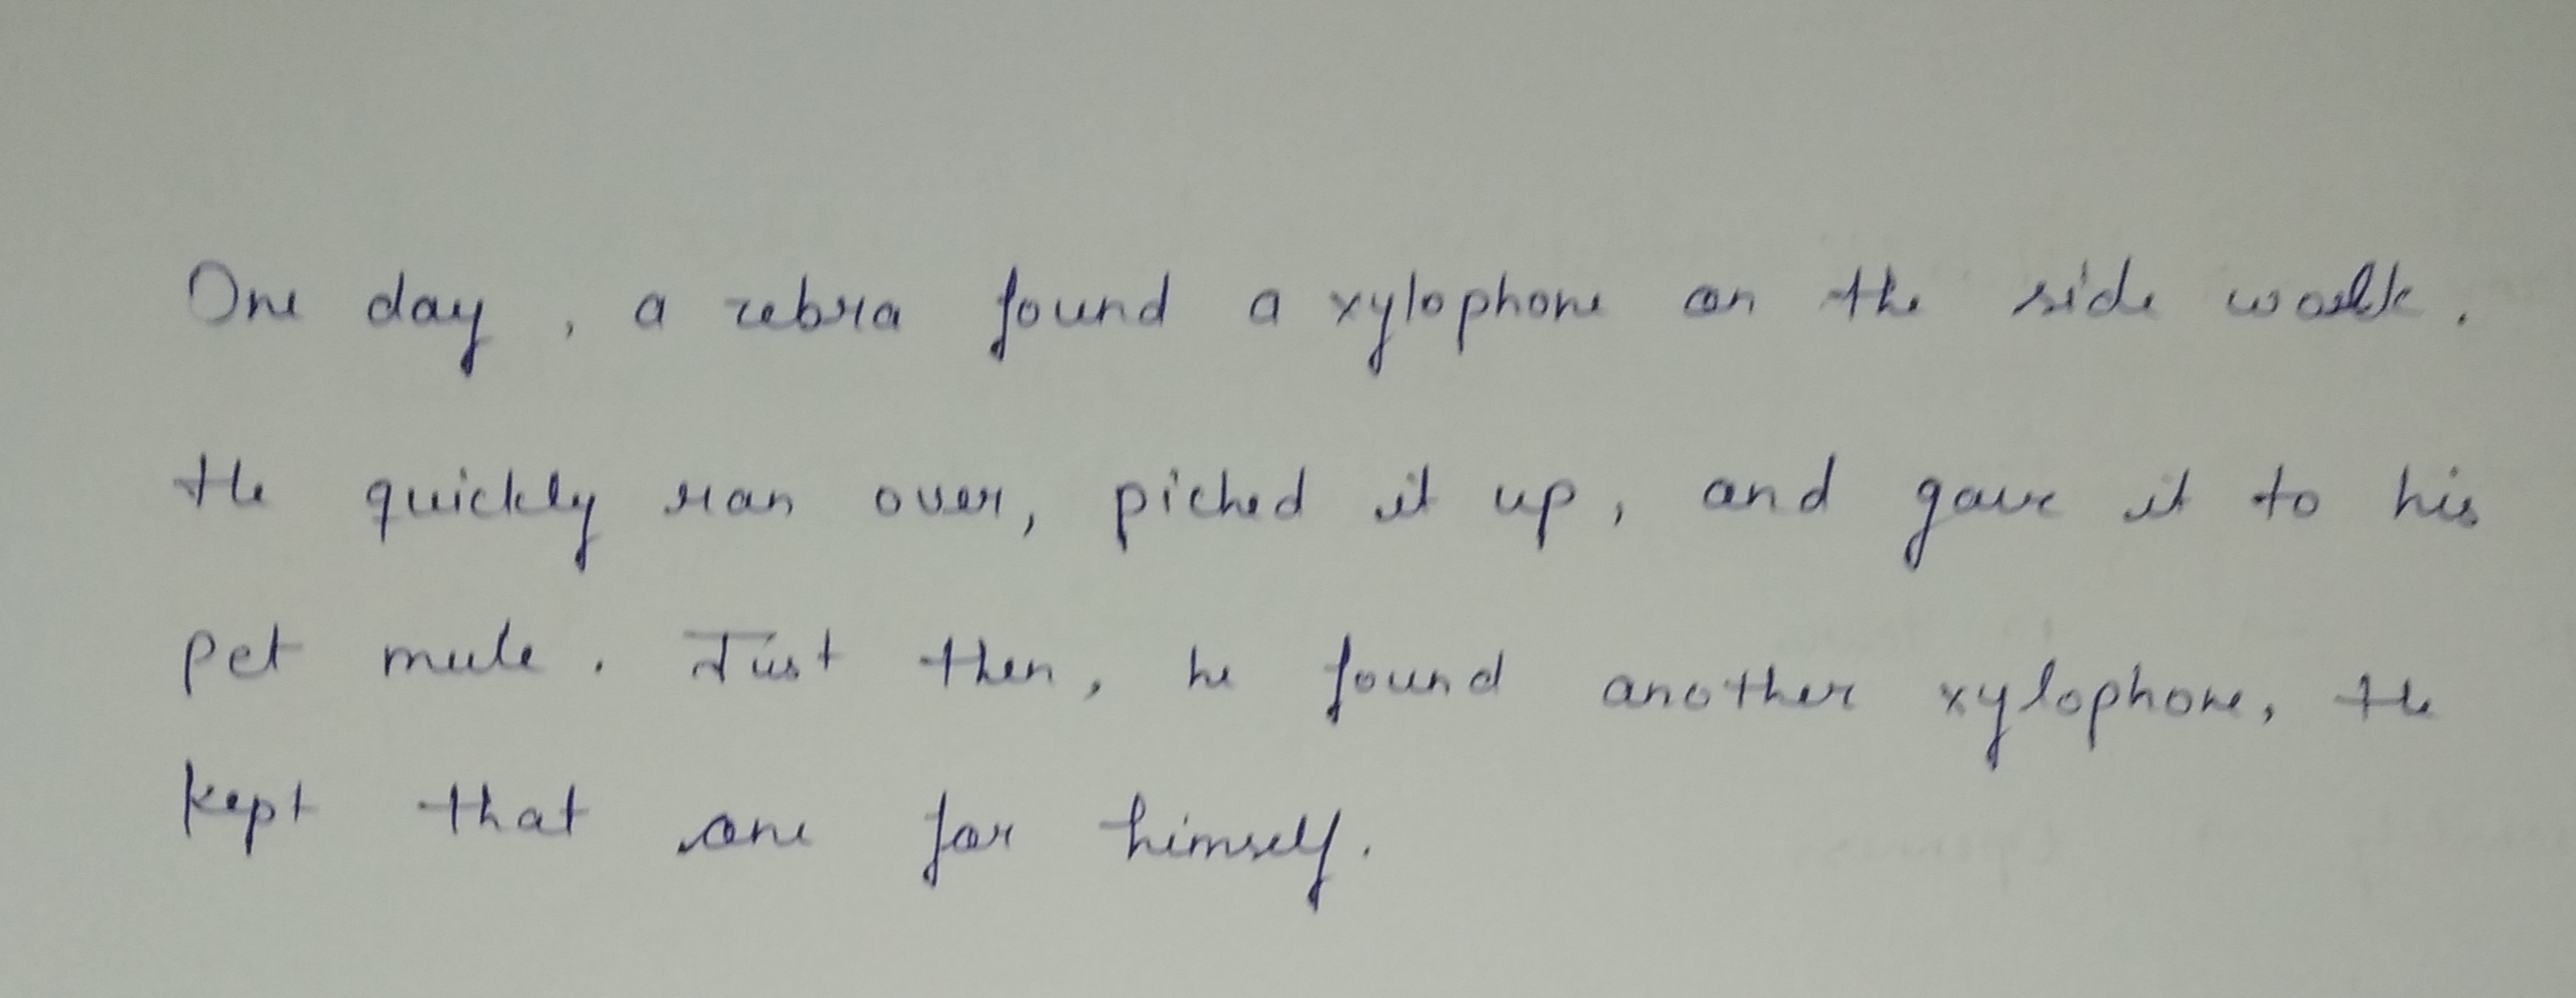 One day, a zebra found a xylophone on the side walk.
He quickly ran over, picked it up, and gave it to his
pet mule. Just then, he found another xylophone, He
kept that one for himself.